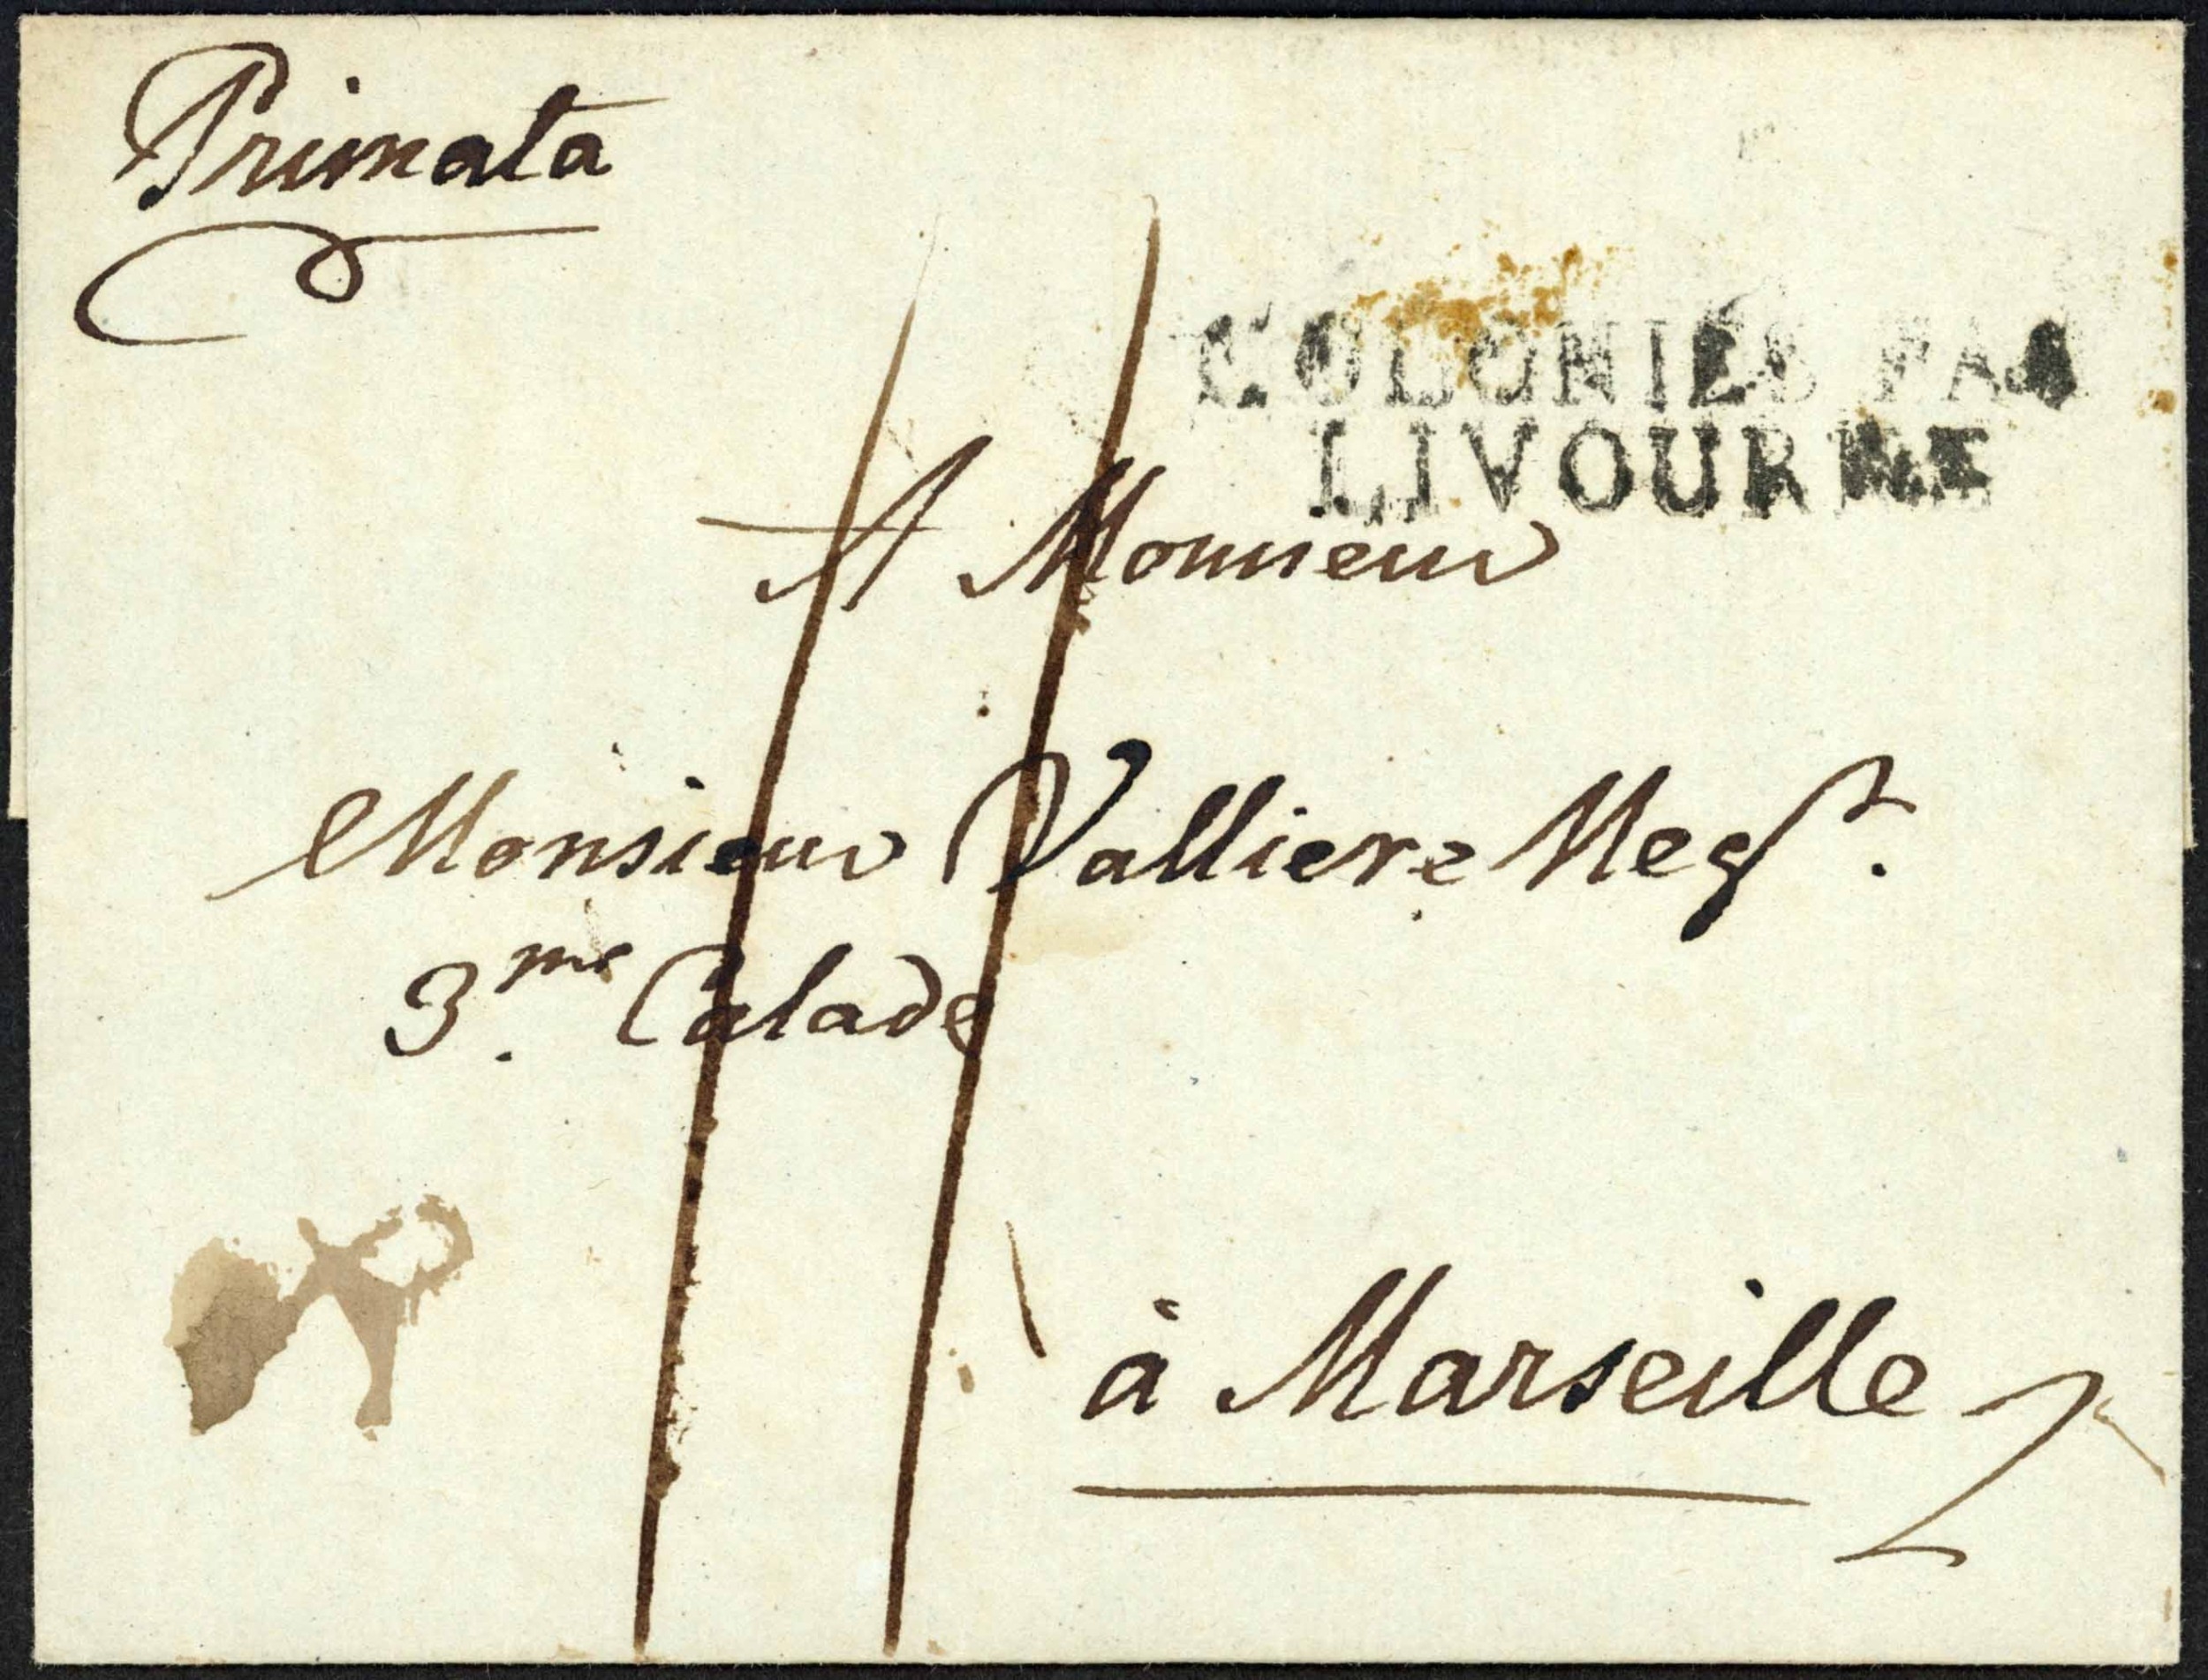 Primata
COLONIES PAR
LIVOURNE
A Monsieur
Monsieur Valliere Negt.
3.me Calade
11
à Marseille